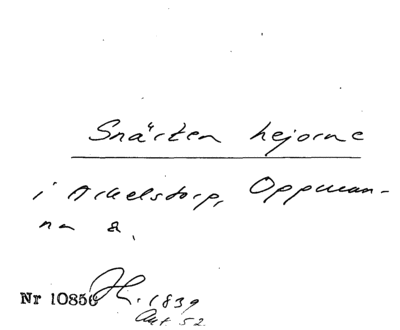 Snärten hejorne
i Arkelstorp, Oppman-
na s.
Nr 10856 1839
Aut 52